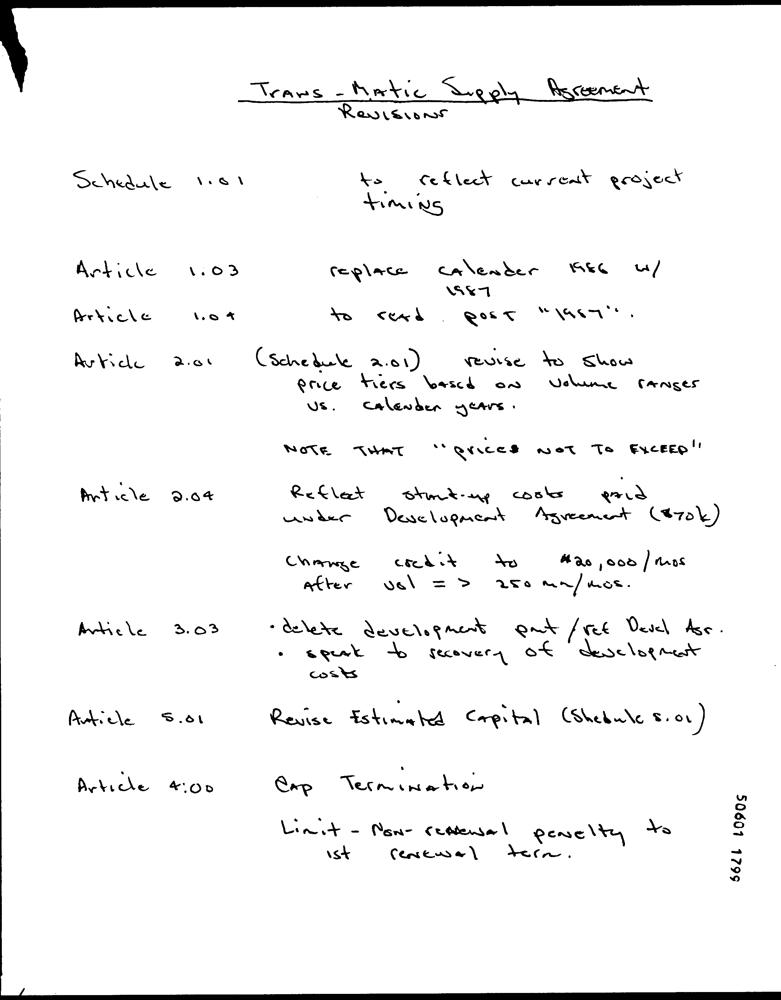 Trans-Matic Supply Agreement
Revisions
Schedule 1.01 to reflect current project
timing
Article 1.03 replace calender 1986 w/
1987
Article 1.04 to read post "1987".
Article 2.01 (Schedule 2.01) revise to show
price tiers based on volume ranges
vs. calender years.
NOTE THAT "prices NOT TO EXCEED"
Article 2.04 Reflect start-up costs paid
under Development Agreement ($70k)
Change credit to $20,000/mos
After vol = > 250 mm/mos.
Article 3.03 • delete development pmt/ref Devel Agr.
• speak to recovery of development
costs
Article 5.01 Revise Estimated Capital (Shedule 5.01)
Article 4:00 Cap Termination
Limit - Non-renewal penelty to
1st renewal term.
50601 1799